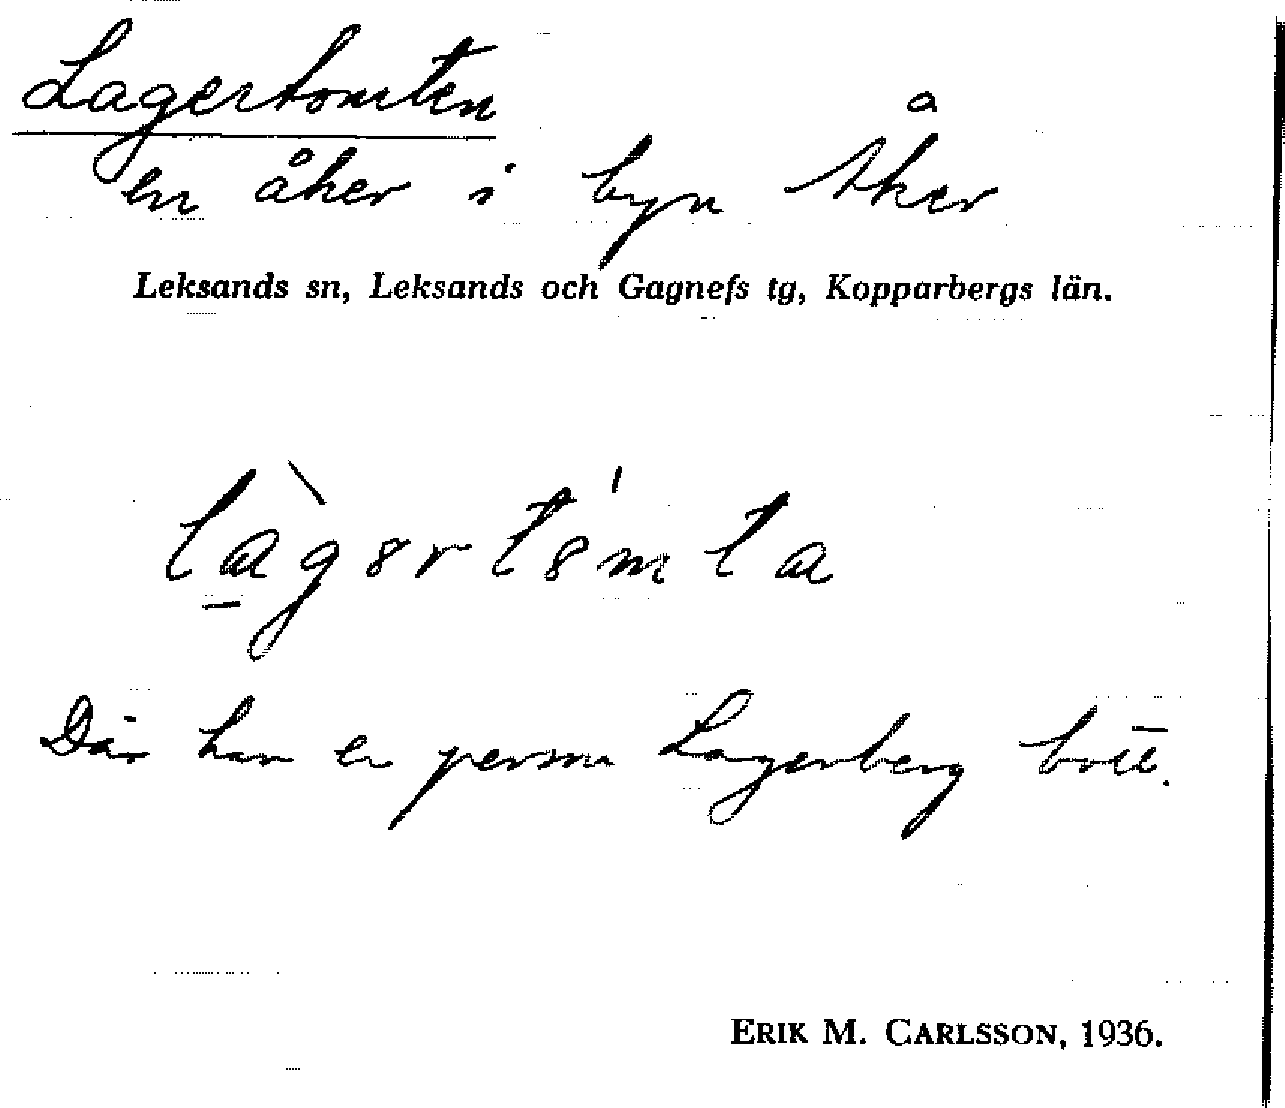 Lagertomten
en åker i byn Åker
Leksands sn, Leksands och Gagnefs tg, Kopparbergs län.
Där har en person Lagerberg bott.
ERIK M. CARLSSON, 1936.